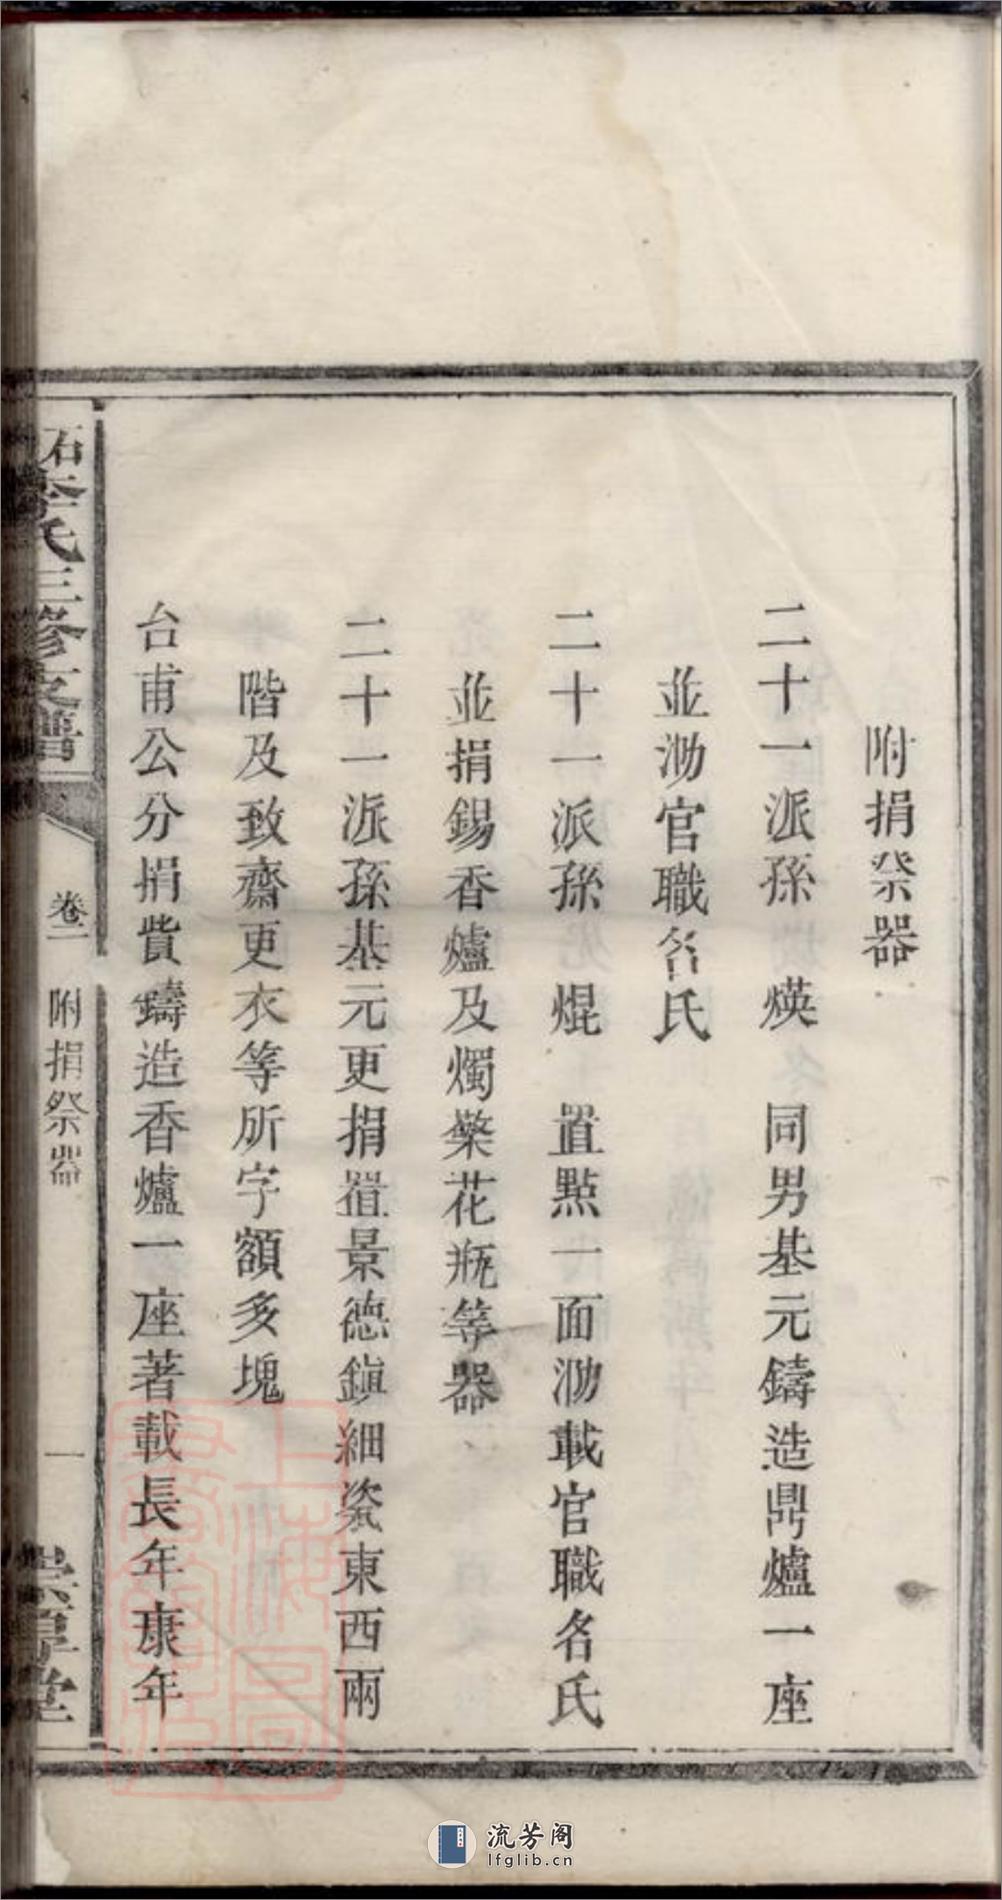 附捐祭器
二十一派孫 煐 同男基元鑄造鼎爐一座
並泐官職名氏
二十一派孫 焜 置點一面泐載官職名氏
並捐錫香爐及燭檠花瓶等器
二十一派孫基元更捐置景德鎮細瓷東西兩
階及致齋更衣等所字額多塊
台甫公分捐貲鑄造香爐一座著載長年康年
石李氏三修支譜
卷二
附捐祭器
一
崇厚堂
上海圖
流芳阁
lfglib.cn